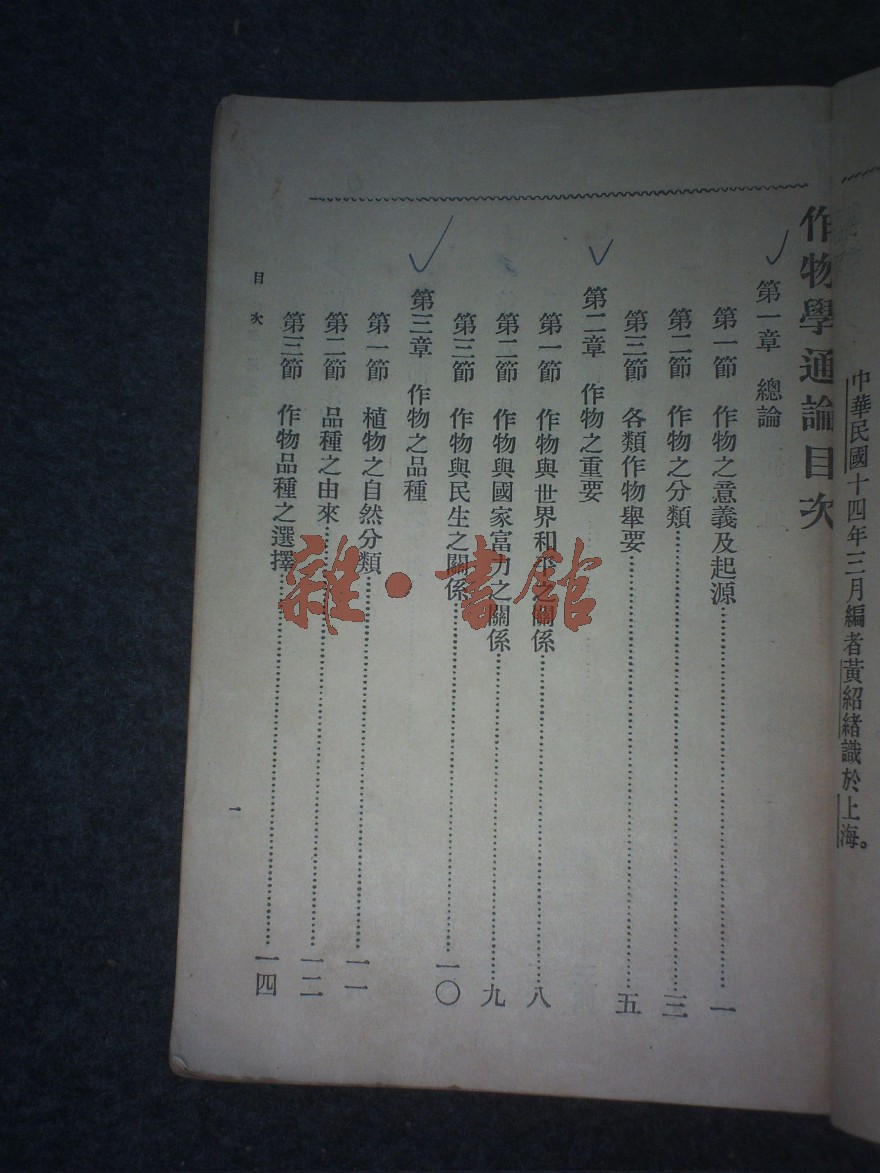 中華民國十四年三月編者黃紹緒識於上海。
作物學通論目次
第一章 總論
第一節 作物之意義及起源……一
第二節 作物之分類……三
第三節 各類作物舉要……五
第二章 作物之重要
第一節 作物與世界和平之關係……八
第二節 作物與國家富力之關係……九
第三節 作物與民生之關係……一〇
第三章 作物之品種
第一節 植物之自然分類……一一
第二節 品種之由來……一二
第三節 作物品種之選擇……一四
目次
一
雜·書館